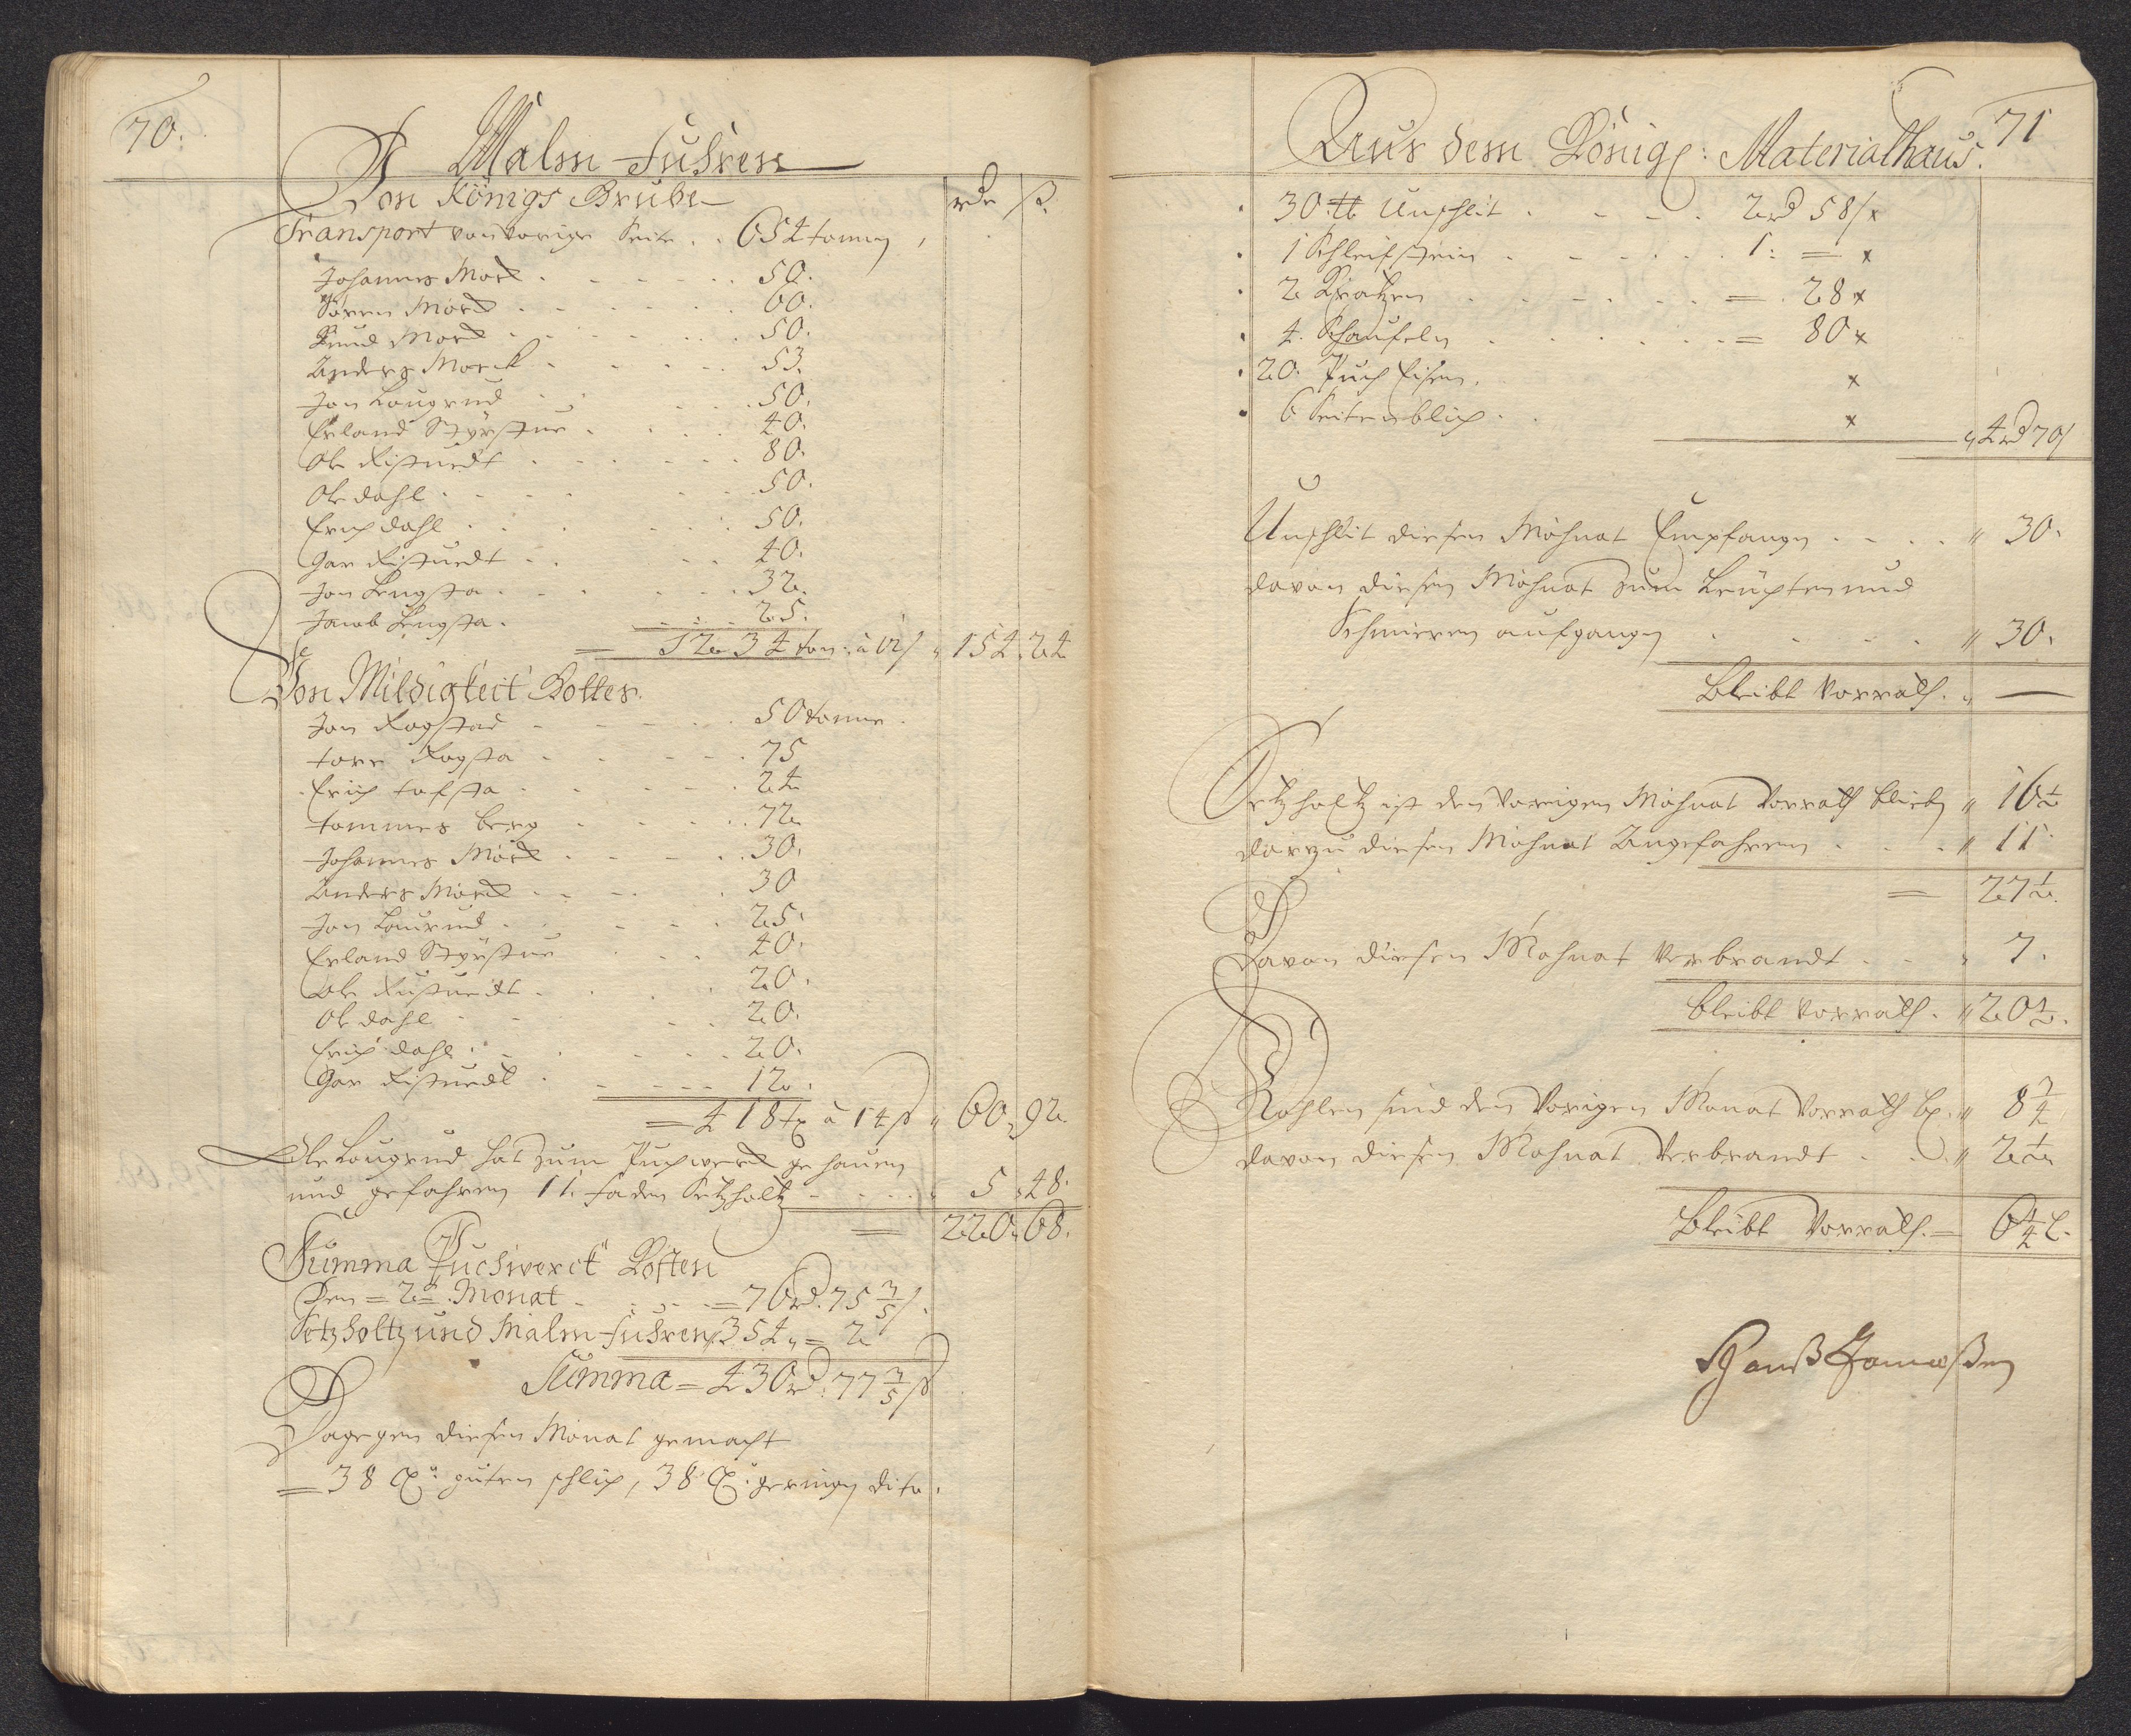 70.
Malm Fuhren
Von Königs Grube
rdr ß.
Transport von vorige Seite . . 654 tonnen
Johannes Morck . . . 50.
Sören Morck . . . 60.
Knud Morck . . . 50.
Anders Morck . . . 53.
Jon Laugrud . . . 50.
Erland Styrstue . . . 40.
Ole Listuedt . . . 80.
Ole dahl . . . 50.
Erich dahl . . . 50.
Gar Listuedt . . . 40.
Jon Lengsta . . . 32.
Jacob Lengsta . . . 25.
= 1234 ton: a 12ß " 154. 24
Von Mildigkeit Gottes.
Jon Rogstad . . . 50 tonne.
tore Rogsta . . . 75
Erich tofsta . . . 24
tommes berg . . . 72
Johannes Morck . . . 30.
Anders Morck . . . 30
Jon Laurud . . . 25.
Erland Styrstue . . . 40.
Ole Listuedt . . . 20.
Ole dahl . . . 20.
Erich dahl . . . 20.
Gar Listuedt . . . 12.
= 418 t a 14ß " 60. 92.
Ole Laugrud hat zum Puchwerck gehauen
und gefahren 11. faden Setzholtz . . . 5. 48.
= 220. 68.
Summa Puchwerck Kosten
Den = 2ten Monat . . . = 76rd. 75 3/5 ß.
Setzholtz und Malm-fuhren 354 " = 2
Summa = 430rd. 77 3/5 ß
Dagegen diesen Monat gemacht
= 38 guten schlich, 38 geringen dito.
71
Aus dem Königl: Materialhaus.
30. ℔ Unschlit . . . 2rd 58ß x
1 Schleifstein . . . 1: = x
2 Kratzen . . . = . 28 x
4. Schaufeln . . . = 80 x
20. Puch Eisen. x
6 Seitenblech . . x
" 4rd 70ß
Unschlit diesen Mohnat Empfangen . . . " 30.
davon diesen Mohnat zum Leuchten und
Schmieren aufgangen . . . " 30.
bleibt Vorrath. " —
Setzholtz ist den Vorigen Mohnat Vorrath blieben " 16½
darzu diesen Mohnat Angefahren . . . " 11.
= 27½.
Davon diesen Mohnat Verbrandt . . " 7.
bleibt Vorrath. " 20½.
Kohlen sind den Vorigen Monat Vorrath bl. " 8¾
davon diesen Mohnat Verbrandt . . " 2½
bleibt Vorrath. = 6¼ l.
Hanß